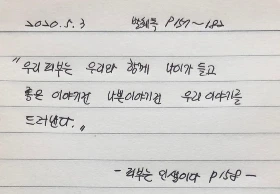 2020.5.3 발췌독 P157~182
"우리 피부는 우리와 함께 나이가 들고
좋은 이야기건 나쁜이야기건 우리 이야기를
드러낸다."
- 피부는 인생이다 P158 -